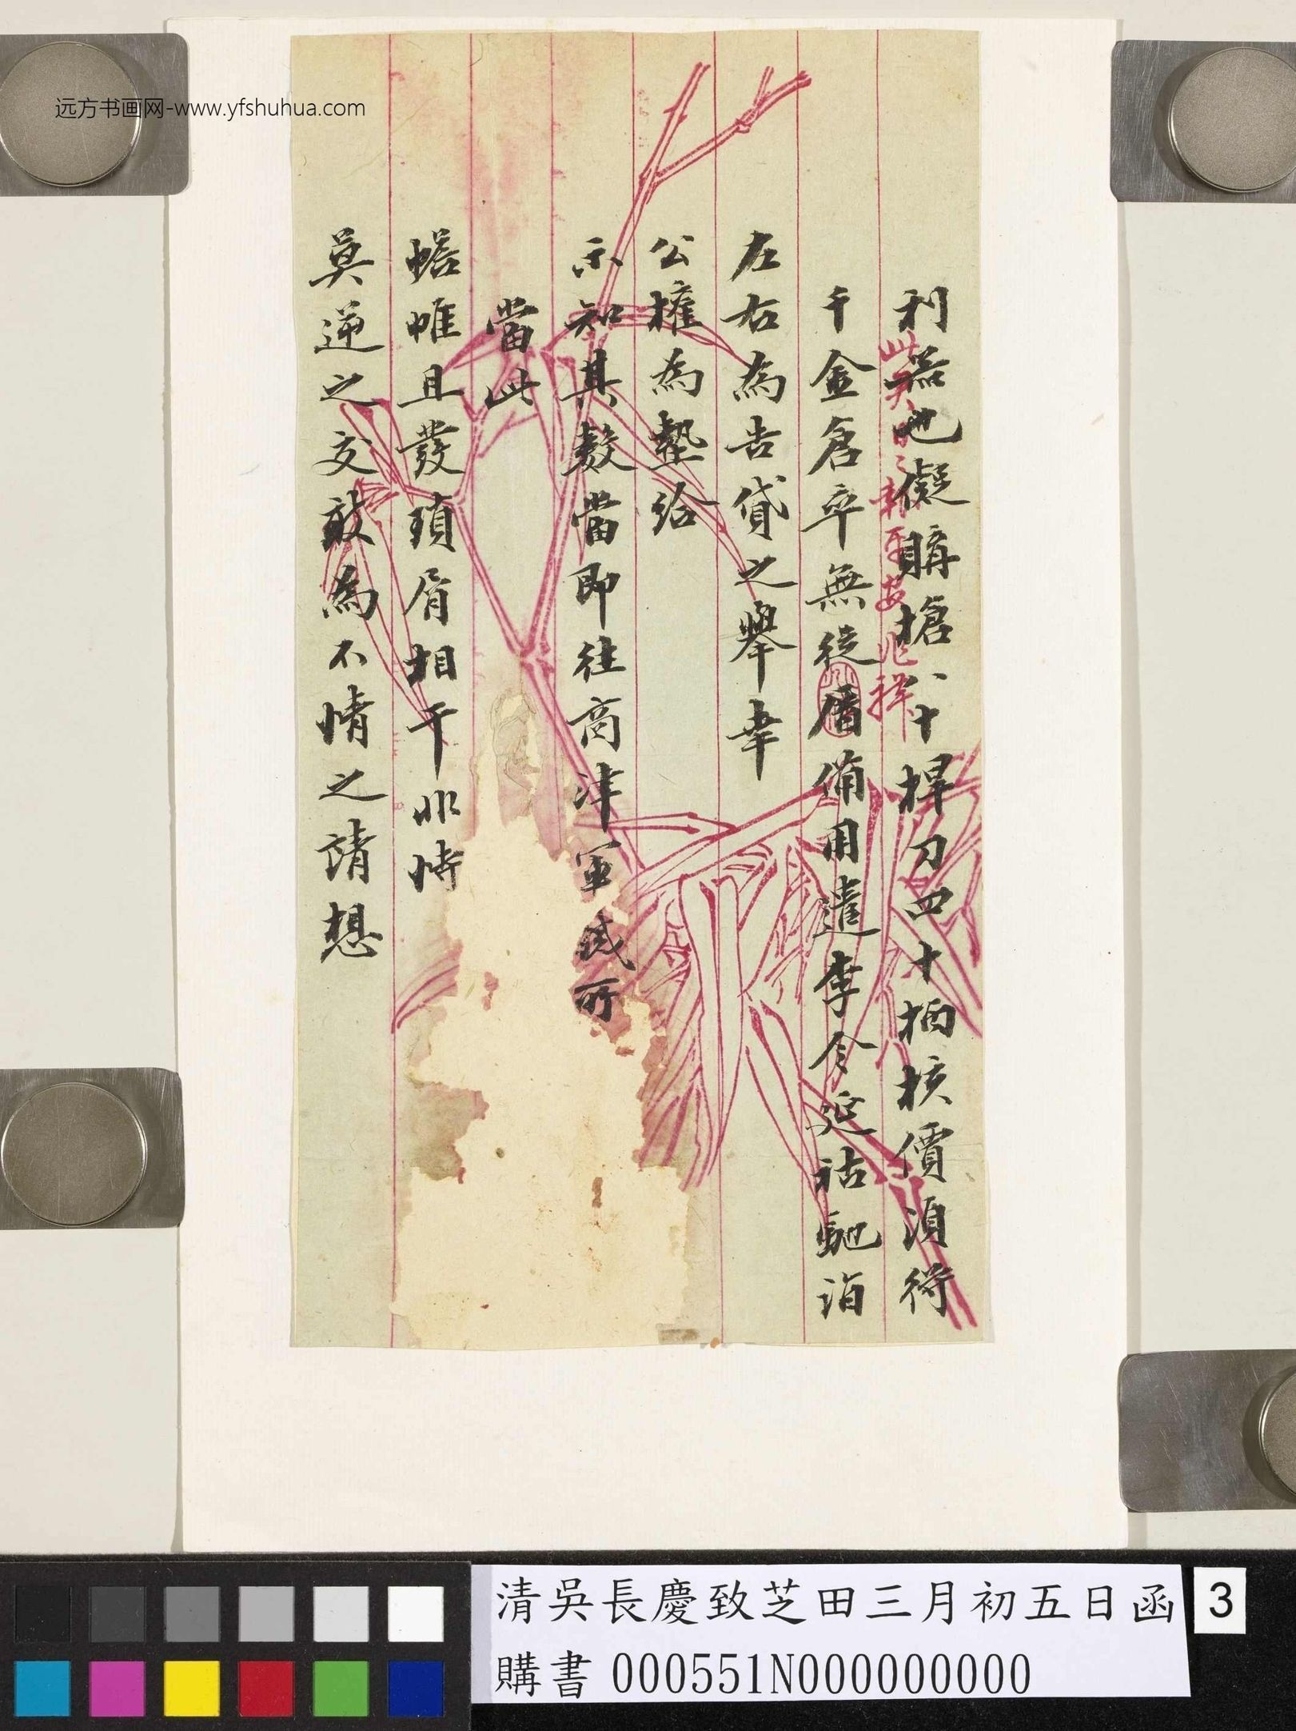 远方书画网-www.yfshuhua.com
利器也儗購搶八十桿刀四十柄核價須得
千金倉卒無從籌備用遣李令延祜馳詣
左右為告貸之舉幸
公權為墊給
示知其數當即往商津軍械所
當此
蟾帷且發瑣屑相干非時
莫逆之交敢為不情之請想
清吳長慶致芝田三月初五日函
3
購書 000551N000000000